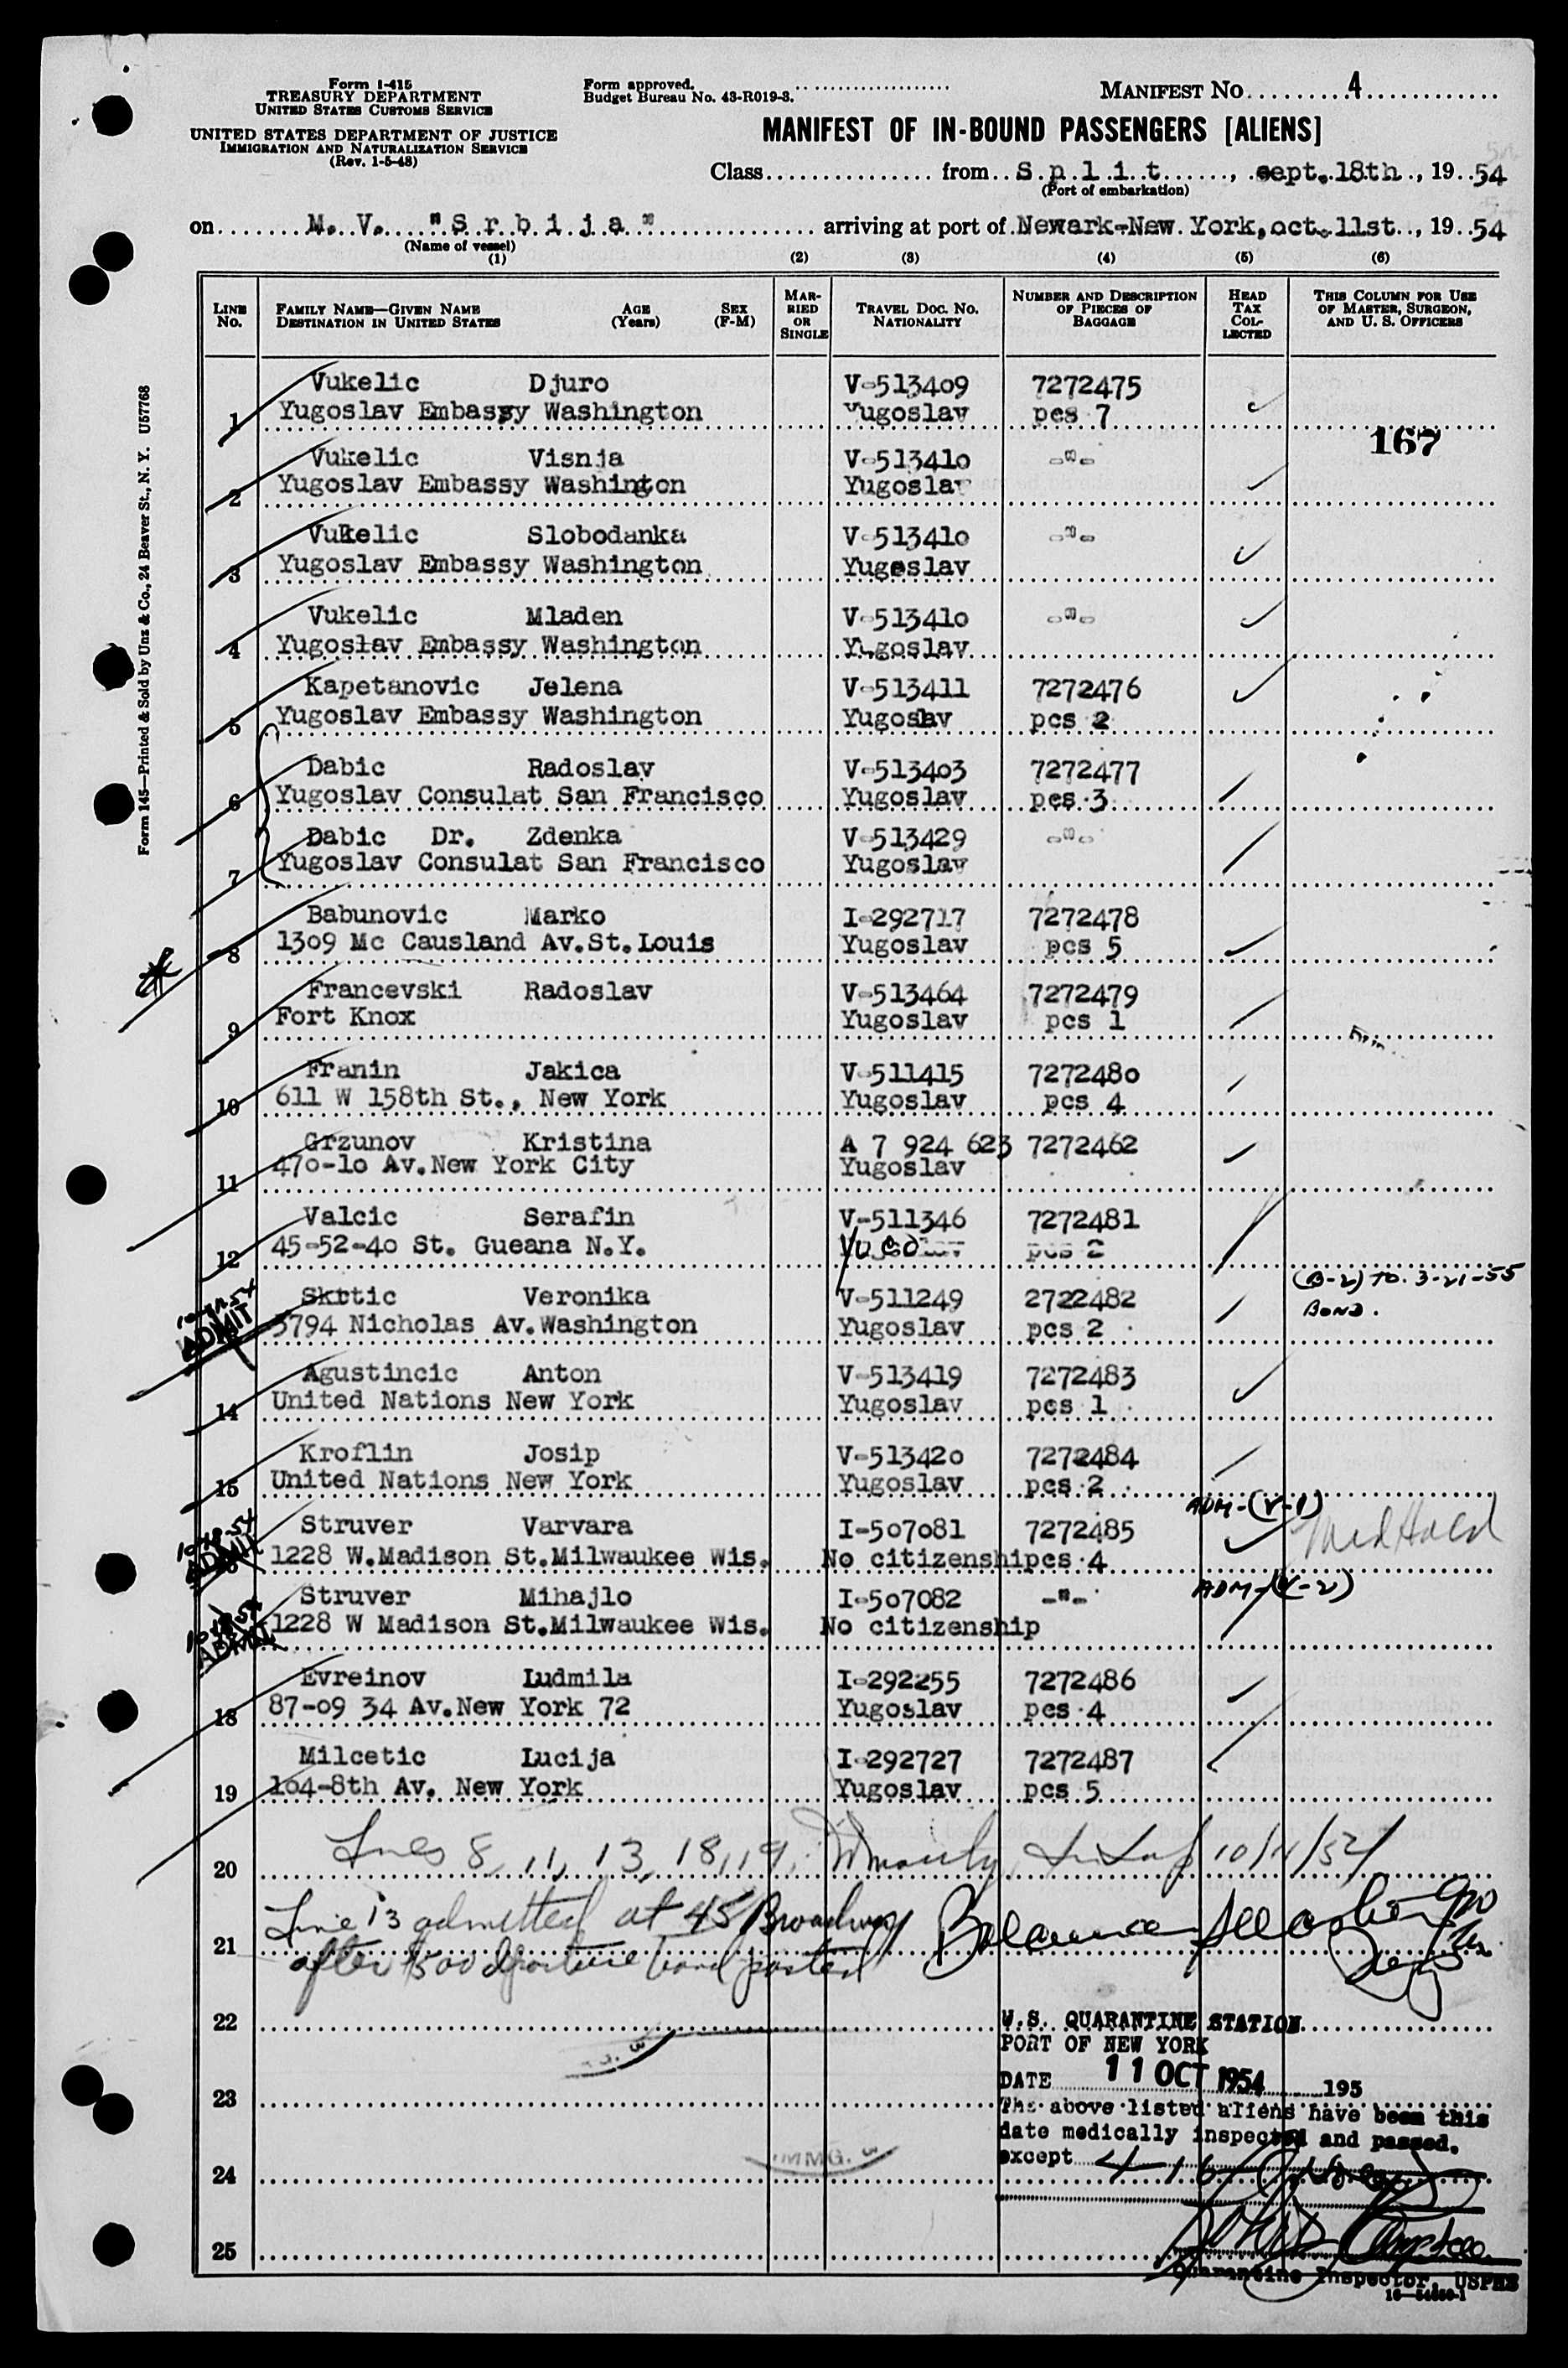 Form I-415
TREASURY DEPARTMENT
UNITED STATES CUSTOMS SERVICE
UNITED STATES DEPARTMENT OF JUSTICE
IMMIGRATION AND NATURALIZATION SERVICE
(Rev. 1-5-48)
Form approved.
Budget Bureau No. 43-R019-3.
MANIFEST NO. 4
MANIFEST OF IN-BOUND PASSENGERS [ALIENS]
Class from Split, sept. 18th, 1954
(Port of embarkation)
on M. V. "Srbija" arriving at port of Newark-New York, oct. 11st, 1954
(Name of vessel)
(1) (2) (3) (4) (5) (6)
LINE NO. FAMILY NAME—GIVEN NAME DESTINATION IN UNITED STATES AGE (Years) SEX (F-M) MARRIED OR SINGLE TRAVEL DOC. NO. NATIONALITY NUMBER AND DESCRIPTION OF PIECES OF BAGGAGE HEAD TAX COLLECTED THIS COLUMN FOR USE OF MASTER, SURGEON, AND U. S. OFFICERS
Form 145—Printed & Sold by Unz & Co., 24 Beaver St., N. Y. U57768
Vukelic Djuro V-513409 7272475
1 Yugoslav Embassy Washington Yugoslav pcs 7
167
Vukelic Visnja V-513410 -"-
2 Yugoslav Embassy Washington Yugoslav
Vukelic Slobodanka V-513410 -"-
3 Yugoslav Embassy Washington Yugoslav
Vukelic Mladen V-513410 -"-
4 Yugoslav Embassy Washington Yugoslav
Kapetanovic Jelena V-513411 7272476
5 Yugoslav Embassy Washington Yugoslav pcs 2
Dabic Radoslav V-513403 7272477
6 Yugoslav Consulat San Francisco Yugoslav pcs 3
Dabic Dr. Zdenka V-513429 -"-
7 Yugoslav Consulat San Francisco Yugoslav
Babunovic Marko I-292717 7272478
8 1309 Mc Causland Av. St. Louis Yugoslav pcs 5
Francevski Radoslav V-513464 7272479
9 Fort Knox Yugoslav pcs 1
Franin Jakica V-511415 7272480
10 611 W 158th St., New York Yugoslav pcs 4
Grzunov Kristina A 7 924 623 7272462
11 470-10 Av. New York City Yugoslav
Valcic Serafin V-511346 7272481
12 45-52-40 St. Gueana N.Y. Yugoslav pcs 2
(B-2) TO. 3-21-55
BOND.
Skttic Veronika V-511249 2722482
ADMIT 3794 Nicholas Av. Washington Yugoslav pcs 2
Agustincic Anton V-513419 7272483
14 United Nations New York Yugoslav pcs 1
Kroflin Josip V-513420 7272484
15 United Nations New York Yugoslav pcs 2
ADM-(V-1)
Struver Varvara I-507081 7272485 Med Hold
ADMIT 1228 W. Madison St. Milwaukee Wis. No citizenship pcs 4
ADM-(V-2)
Struver Mihajlo I-507082 -"-
ADMIT 1228 W Madison St. Milwaukee Wis. No citizenship
Evreinov Ludmila I-292255 7272486
18 87-09 34 Av. New York 72 Yugoslav pcs 4
Milcetic Lucija I-292727 7272487
19 164-8th Av. New York Yugoslav pcs 5
20 Lines 8, 11, 13, 18, 19, 10/11/54
Line 13 admitted at 45 Broadway
21 after $500 departure bond posted
22
U.S. QUARANTINE STATION
PORT OF NEW YORK
23 DATE 11 OCT 1954 195
The above listed aliens have been this
date medically inspected and passed.
24 except
25
Quarantine Inspector, USPHS